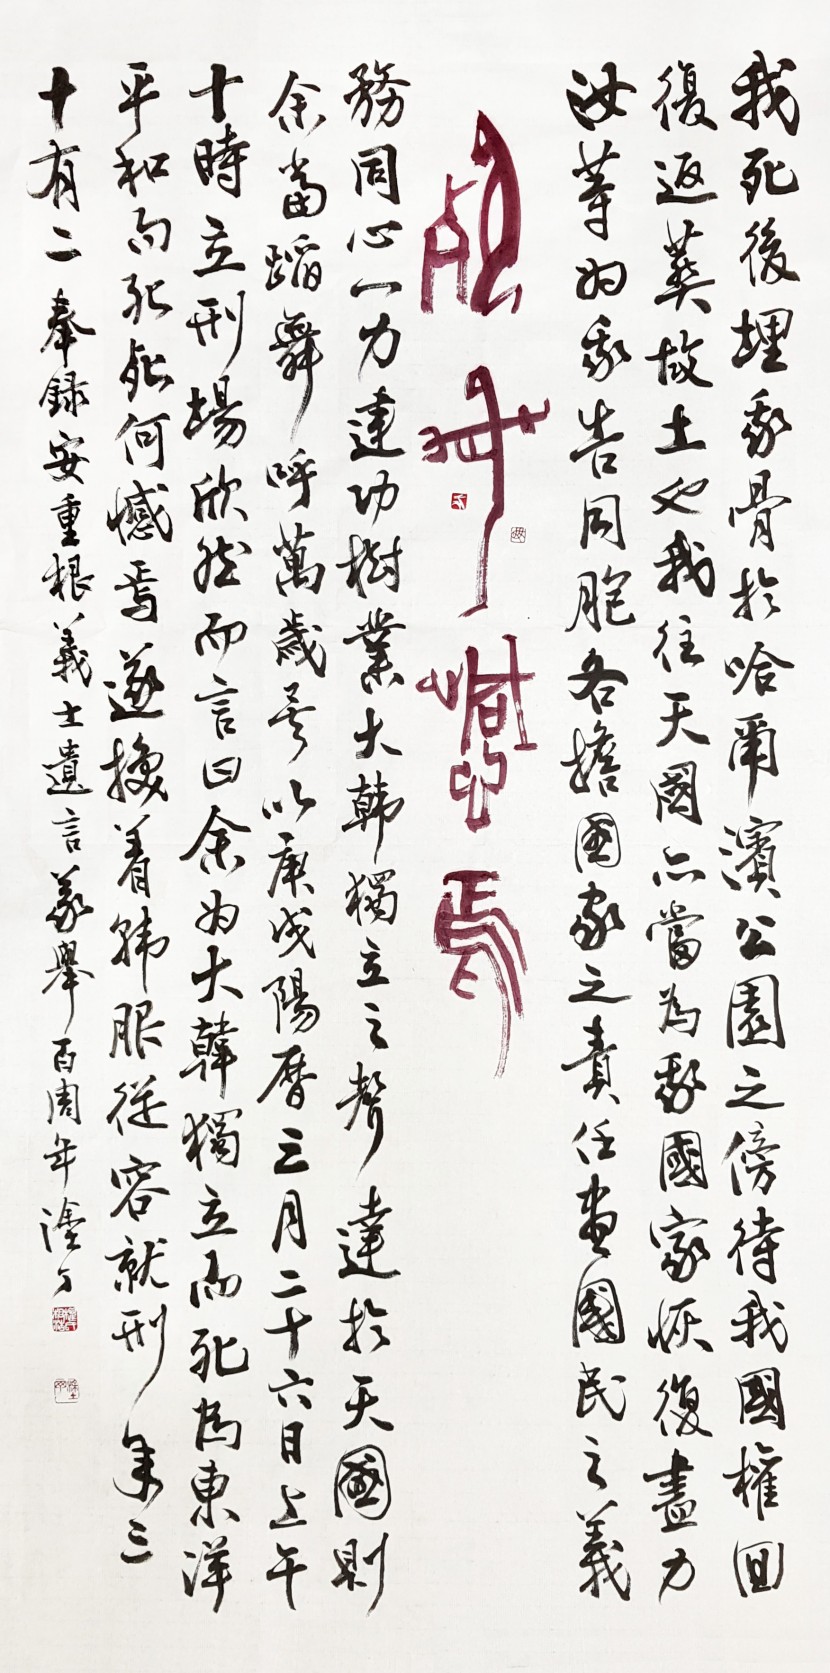 我死後埋我骨於哈爾濱公園之傍待我國權回
復返葬故土也我往天國亦當為我國家恢復盡力
汝等為我告同胞各擔國家之責任盡國民之義
死何憾焉
務同心一力建功樹業大韓獨立之聲達於天國則
余當蹈舞呼萬歲矣以庚戌陽曆三月二十六日上午
十時立刑場欣然而言曰余為大韓獨立而死為東洋
平和而死死何憾焉遂換着韓服從容就刑年三
十有二 奉錄安重根義士遺言義擧百周年塗丁